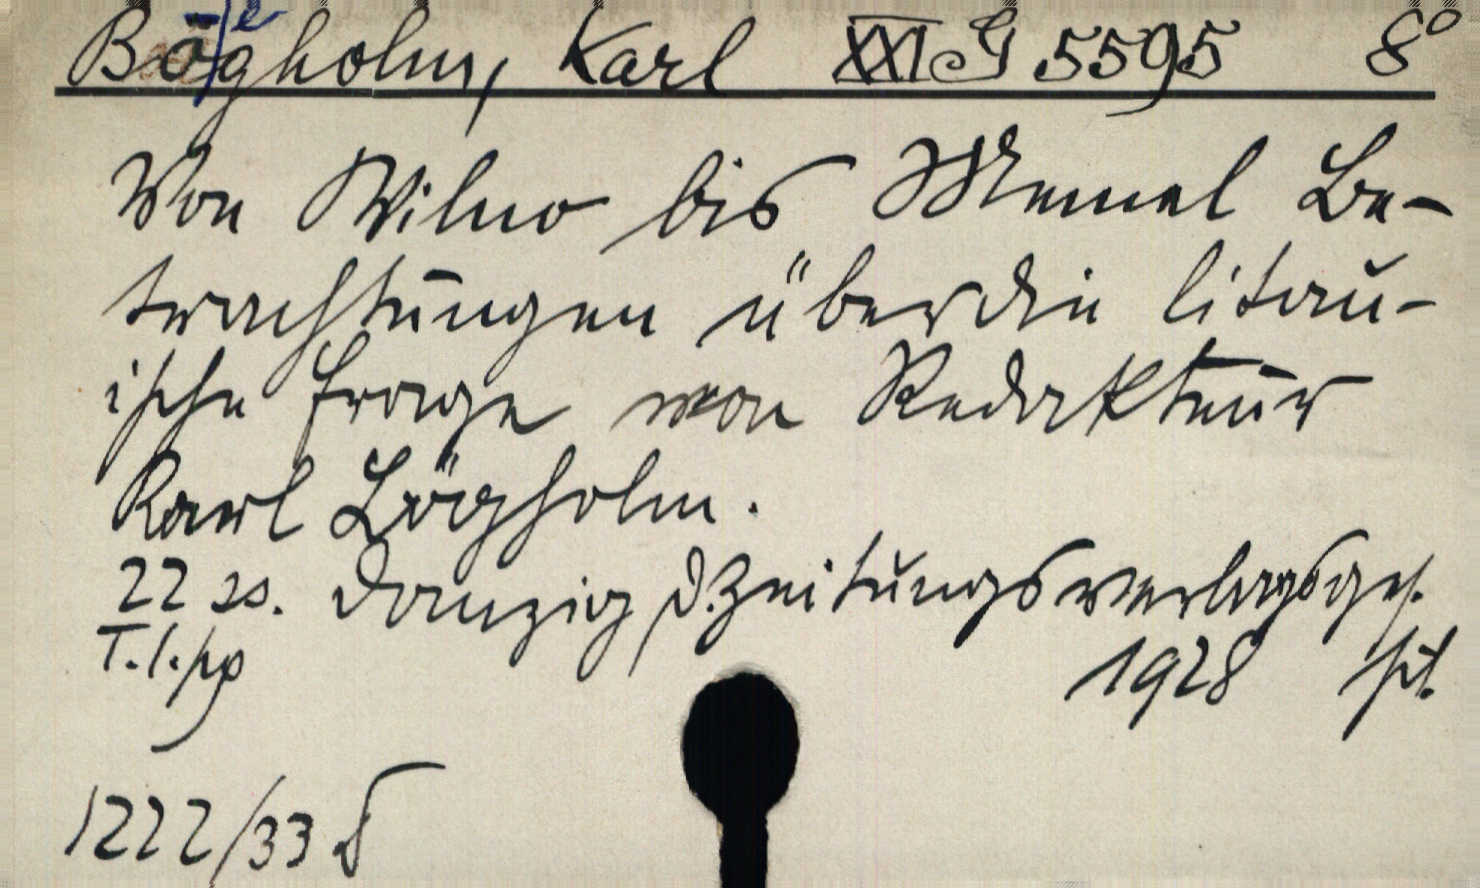 Bögholm, Karl XXI G 5595 8°
Von Wilno bis Memel Be-
trachtungen über die litau-
ische Frage von Redakteur
Karl Bögholm.
22 ss. Danzig, D. Zeitungsverlagsges.
T. l. pp 1928
1222/33